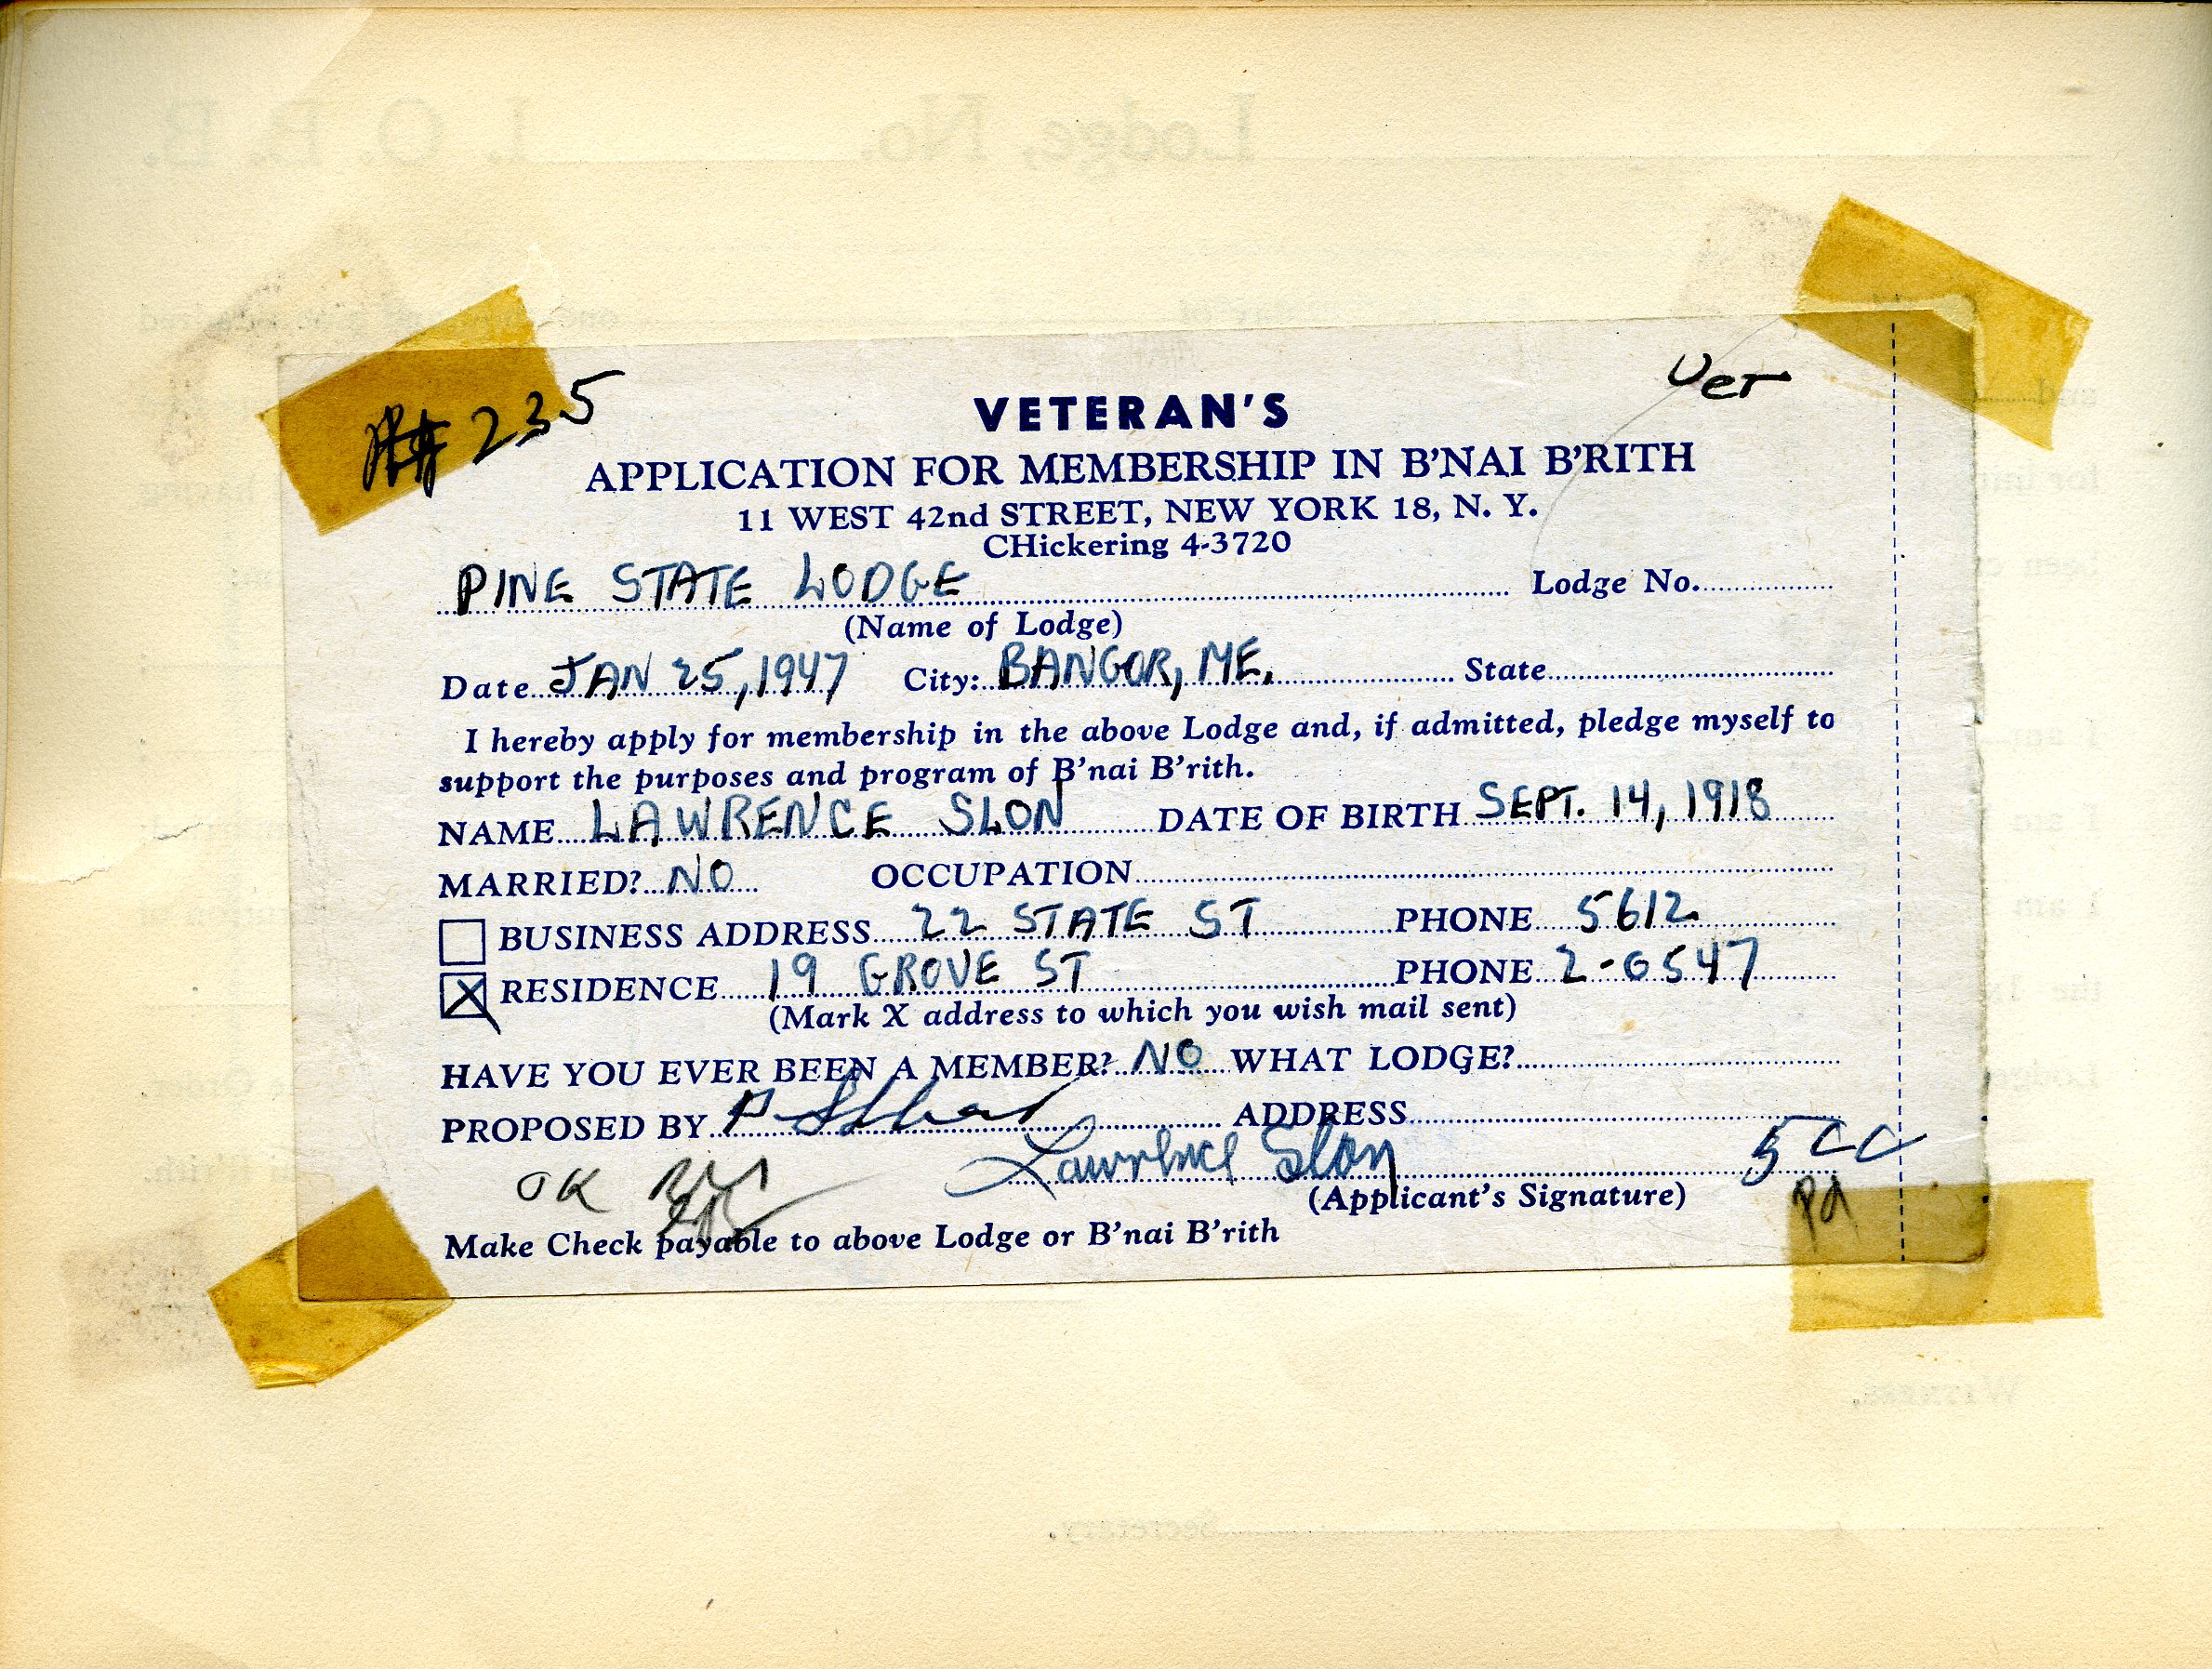 # 235
Vet
VETERAN'S
APPLICATION FOR MEMBERSHIP IN B'NAI B'RITH
11 WEST 42nd STREET, NEW YORK 18, N. Y.
CHickering 4-3720
PINE STATE LODGE Lodge No.
(Name of Lodge)
Date JAN 25, 1947 City: BANGOR, ME. State
I hereby apply for membership in the above Lodge and, if admitted, pledge myself to
support the purposes and program of B'nai B'rith.
NAME LAWRENCE SLON DATE OF BIRTH SEPT. 14, 1918
MARRIED? NO OCCUPATION
BUSINESS ADDRESS 22 STATE ST PHONE 5612
X RESIDENCE 19 GROVE ST PHONE 2-0547
(Mark X address to which you wish mail sent)
HAVE YOU EVER BEEN A MEMBER? NO WHAT LODGE?
PROPOSED BY P ADDRESS
OK Lawrence Slon
(Applicant's Signature) Pd
Make Check payable to above Lodge or B'nai B'rith